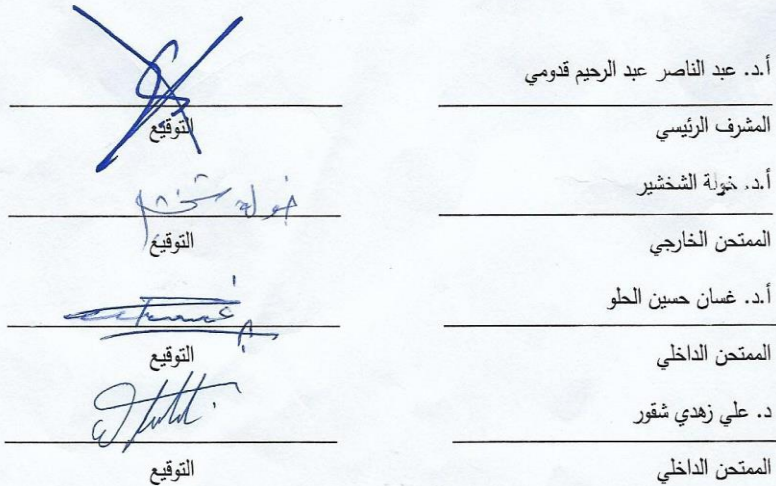 أ.د. عبد الناصر عبد الرحيم قدومي
المشرف الرئيسي
التوقيع
أ.د. خولة الشخشير
خولة شخشير
الممتحن الخارجي
التوقيع
أ.د. غسان حسين الحلو
الممتحن الداخلي
التوقيع
د. علي زهدي شقور
الممتحن الداخلي
التوقيع